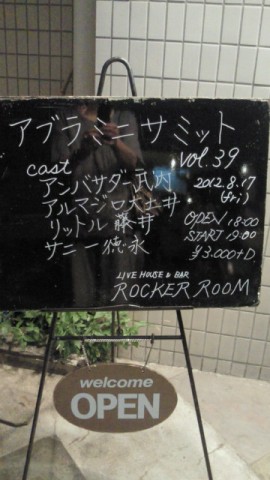 アブラミニサミット
vol.39
cast
アンバサダー武内
アルマジロ大土井
リットル藤井
サニー徳永
2012.8.17
(fri)
OPEN 18:00
START 19:00
¥3.000+D
LIVE HOUSE & BAR
ROCKER ROOM
welcome
OPEN